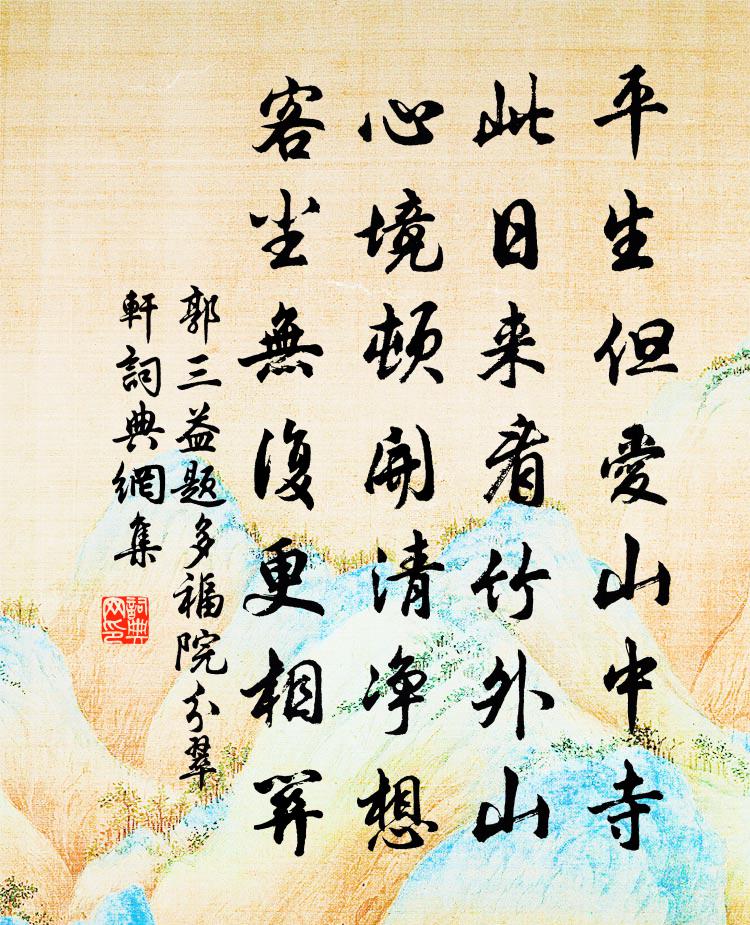 平生但愛山中寺
此日来看竹外山
心境頓開清净想
客尘無復更相関
郭三益題多福院分翠
軒詞典網集
詞典网印